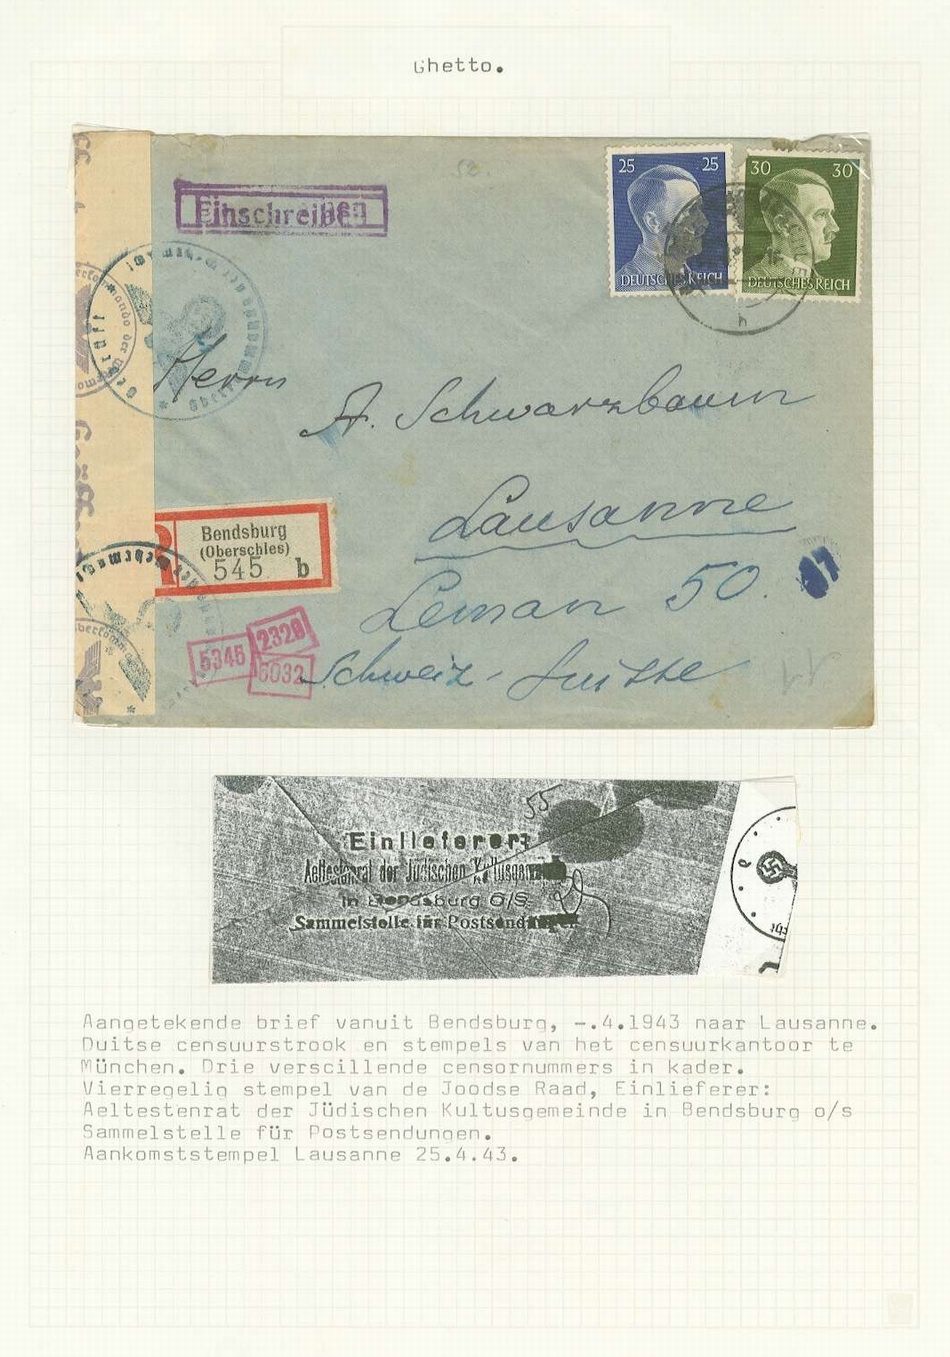 Ghetto.
25 25
DEUTSCHES REICH
30 30
DEUTSCHES REICH
Einschreiben
h
Geprüft
Herrn
A. Schwarzbaum
Lausanne
Leman 50.
Schweiz - Suisse
R
Bendsburg
(Oberschles)
545 b
5345
2329
6032
11
55
Einlieferer:
Aeltestenrat der Jüdischen Kultusgemeinde
in Bendsburg O/S.
Sammelstelle für Postsendungen
Aangetekende brief vanuit Bendsburg, -.4.1943 naar Lausanne.
Duitse censuurstrook en stempels van het censuurkantoor te
München. Drie verscillende censornummers in kader.
Vierregelig stempel van de Joodse Raad, Einlieferer:
Aeltestenrat der Jüdischen Kultusgemeinde in Bendsburg o/s
Sammelstelle für Postsendungen.
Aankomststempel Lausanne 25.4.43.